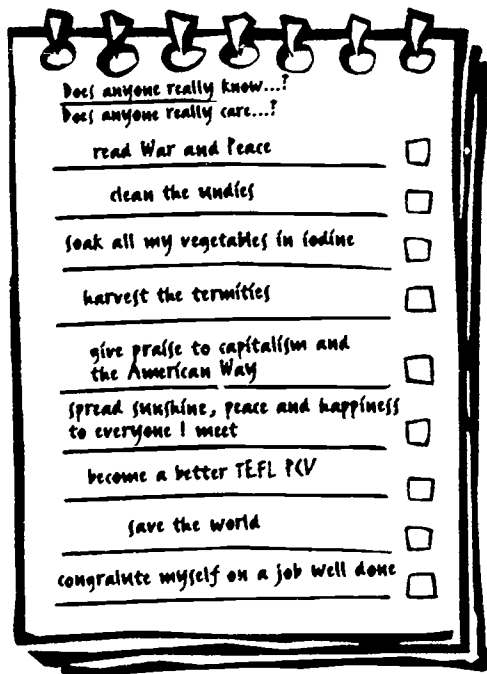 Does anyone really know...?
Does anyone really care...?
read War and Peace
clean the undies
soak all my vegetables in iodine
harvest the termities
give praise to capitalism and
the American Way
spread sunshine, peace and happiness
to everyone I meet
become a better TEFL PCV
save the world
congralute myself on a job well done